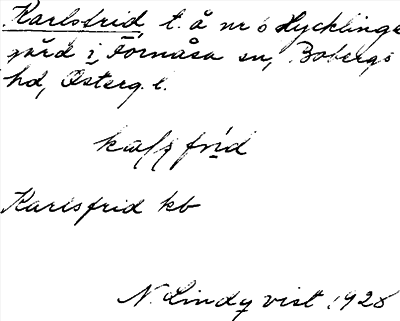 Karlsfrid, t. å nr 6 Hycklinge
gård i Fornåsa sn, Bobergs
hd, Österg. l.
Karlsfrid kb
N. Lindqvist 1928